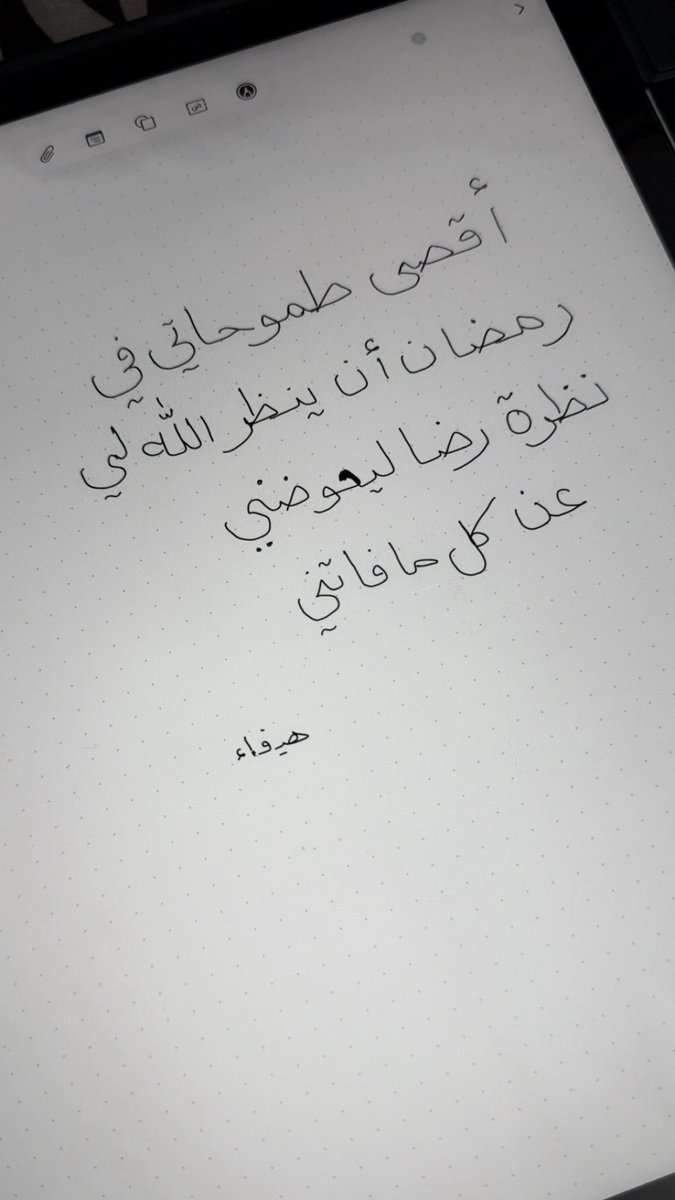 أقصى طموحاتي في
رمضان أن ينظر الله لي
نظرة رضا ليعوضني
عن كل ما فاتني
هيفاء